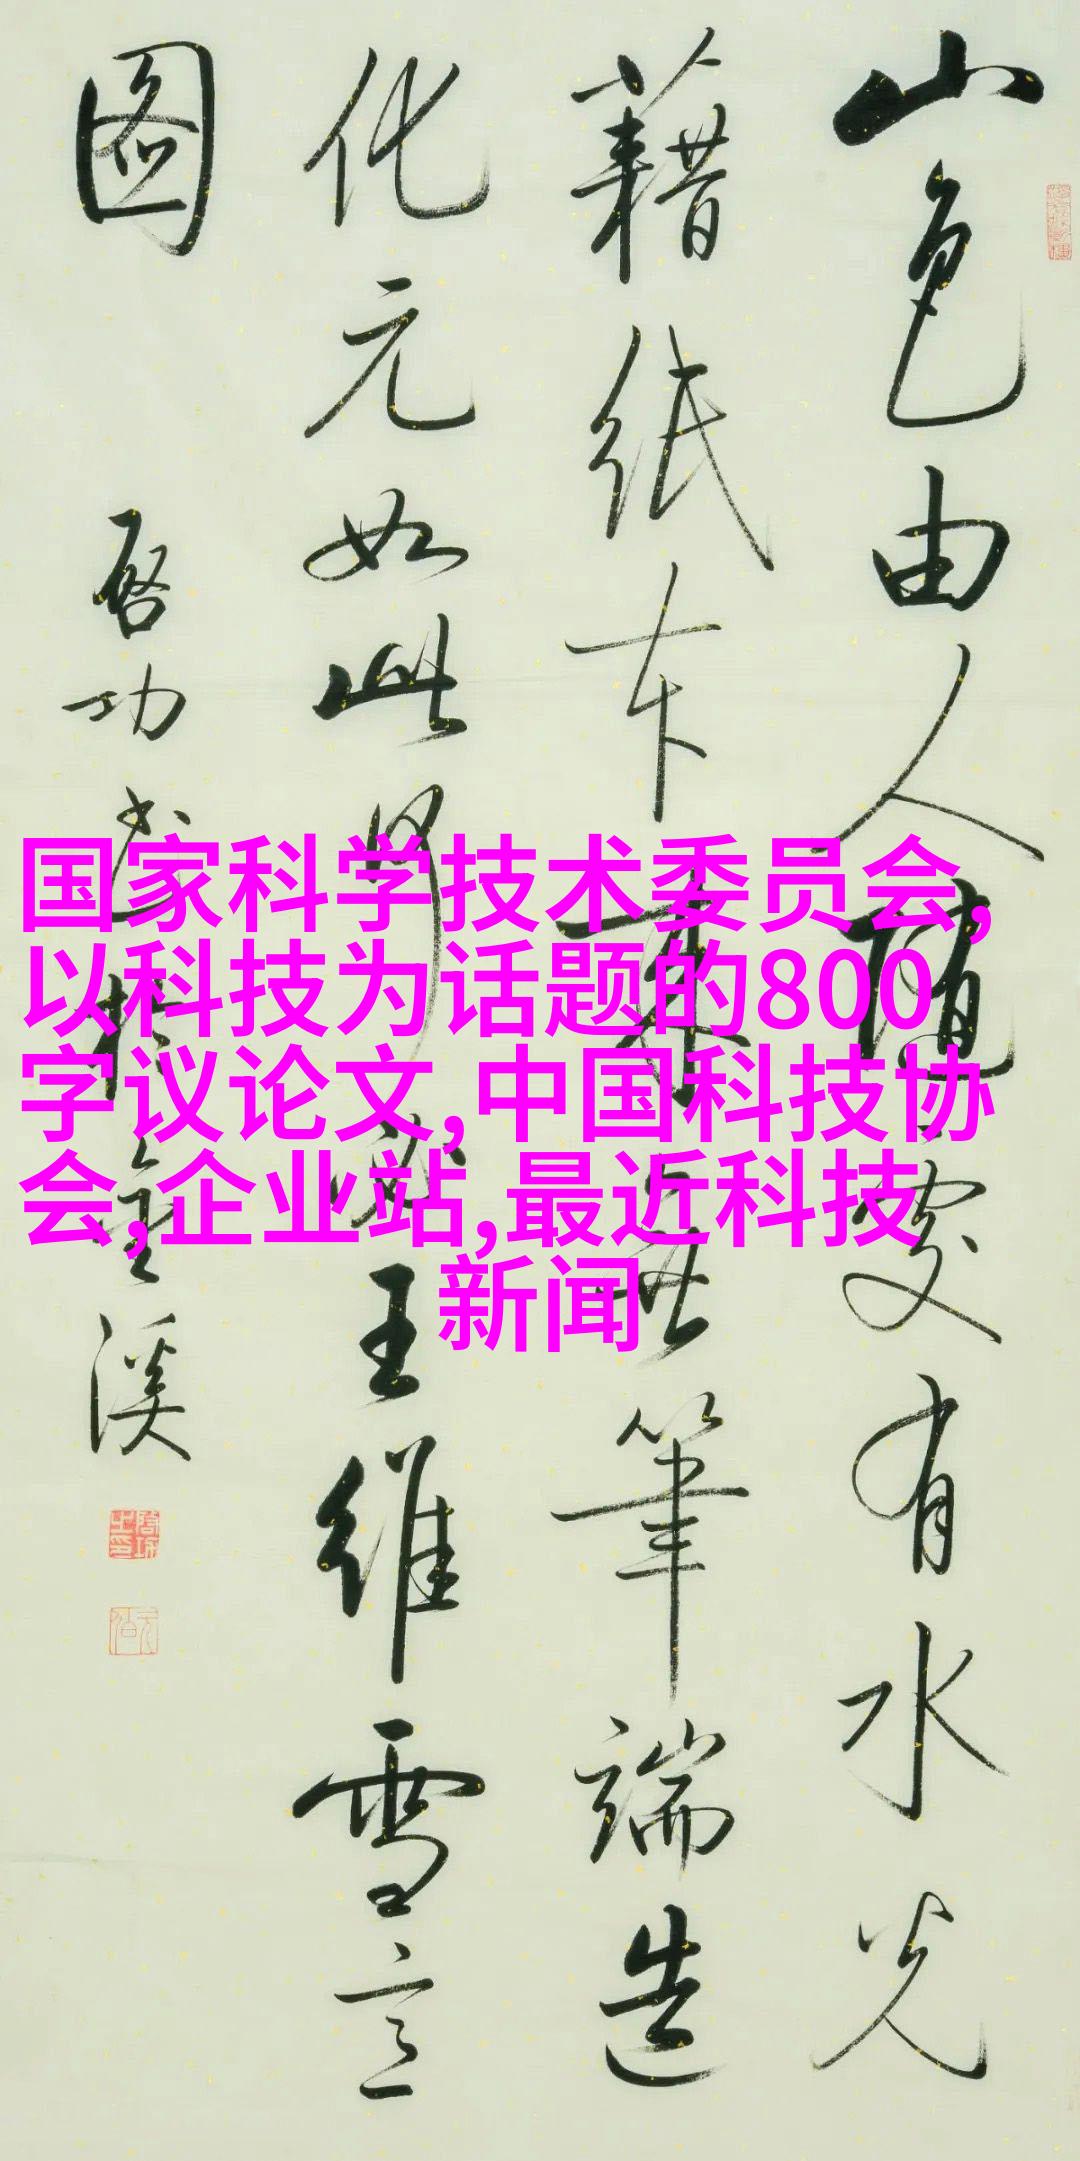 山色由人随處有水光
藉紙本来無筆端造
化元如此王維雪
图
启功书於金溪
国家科学技术委员会,
以科技为话题的800
字议论文,中国科技协
会,企业站,最近科技
新闻